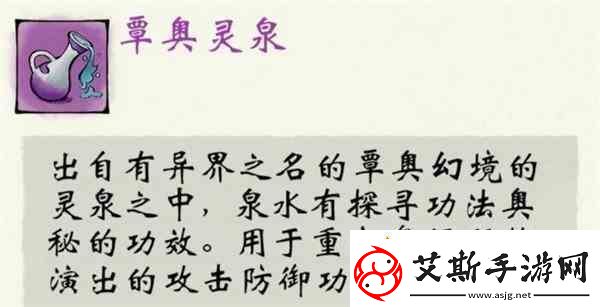 覃奥灵泉
出自有异界之名的覃奥幻境的
灵泉之中，泉水有探寻功法奥
秘的功效。用于重
演出的攻击防御功
艾斯手游网
www.asjg.net